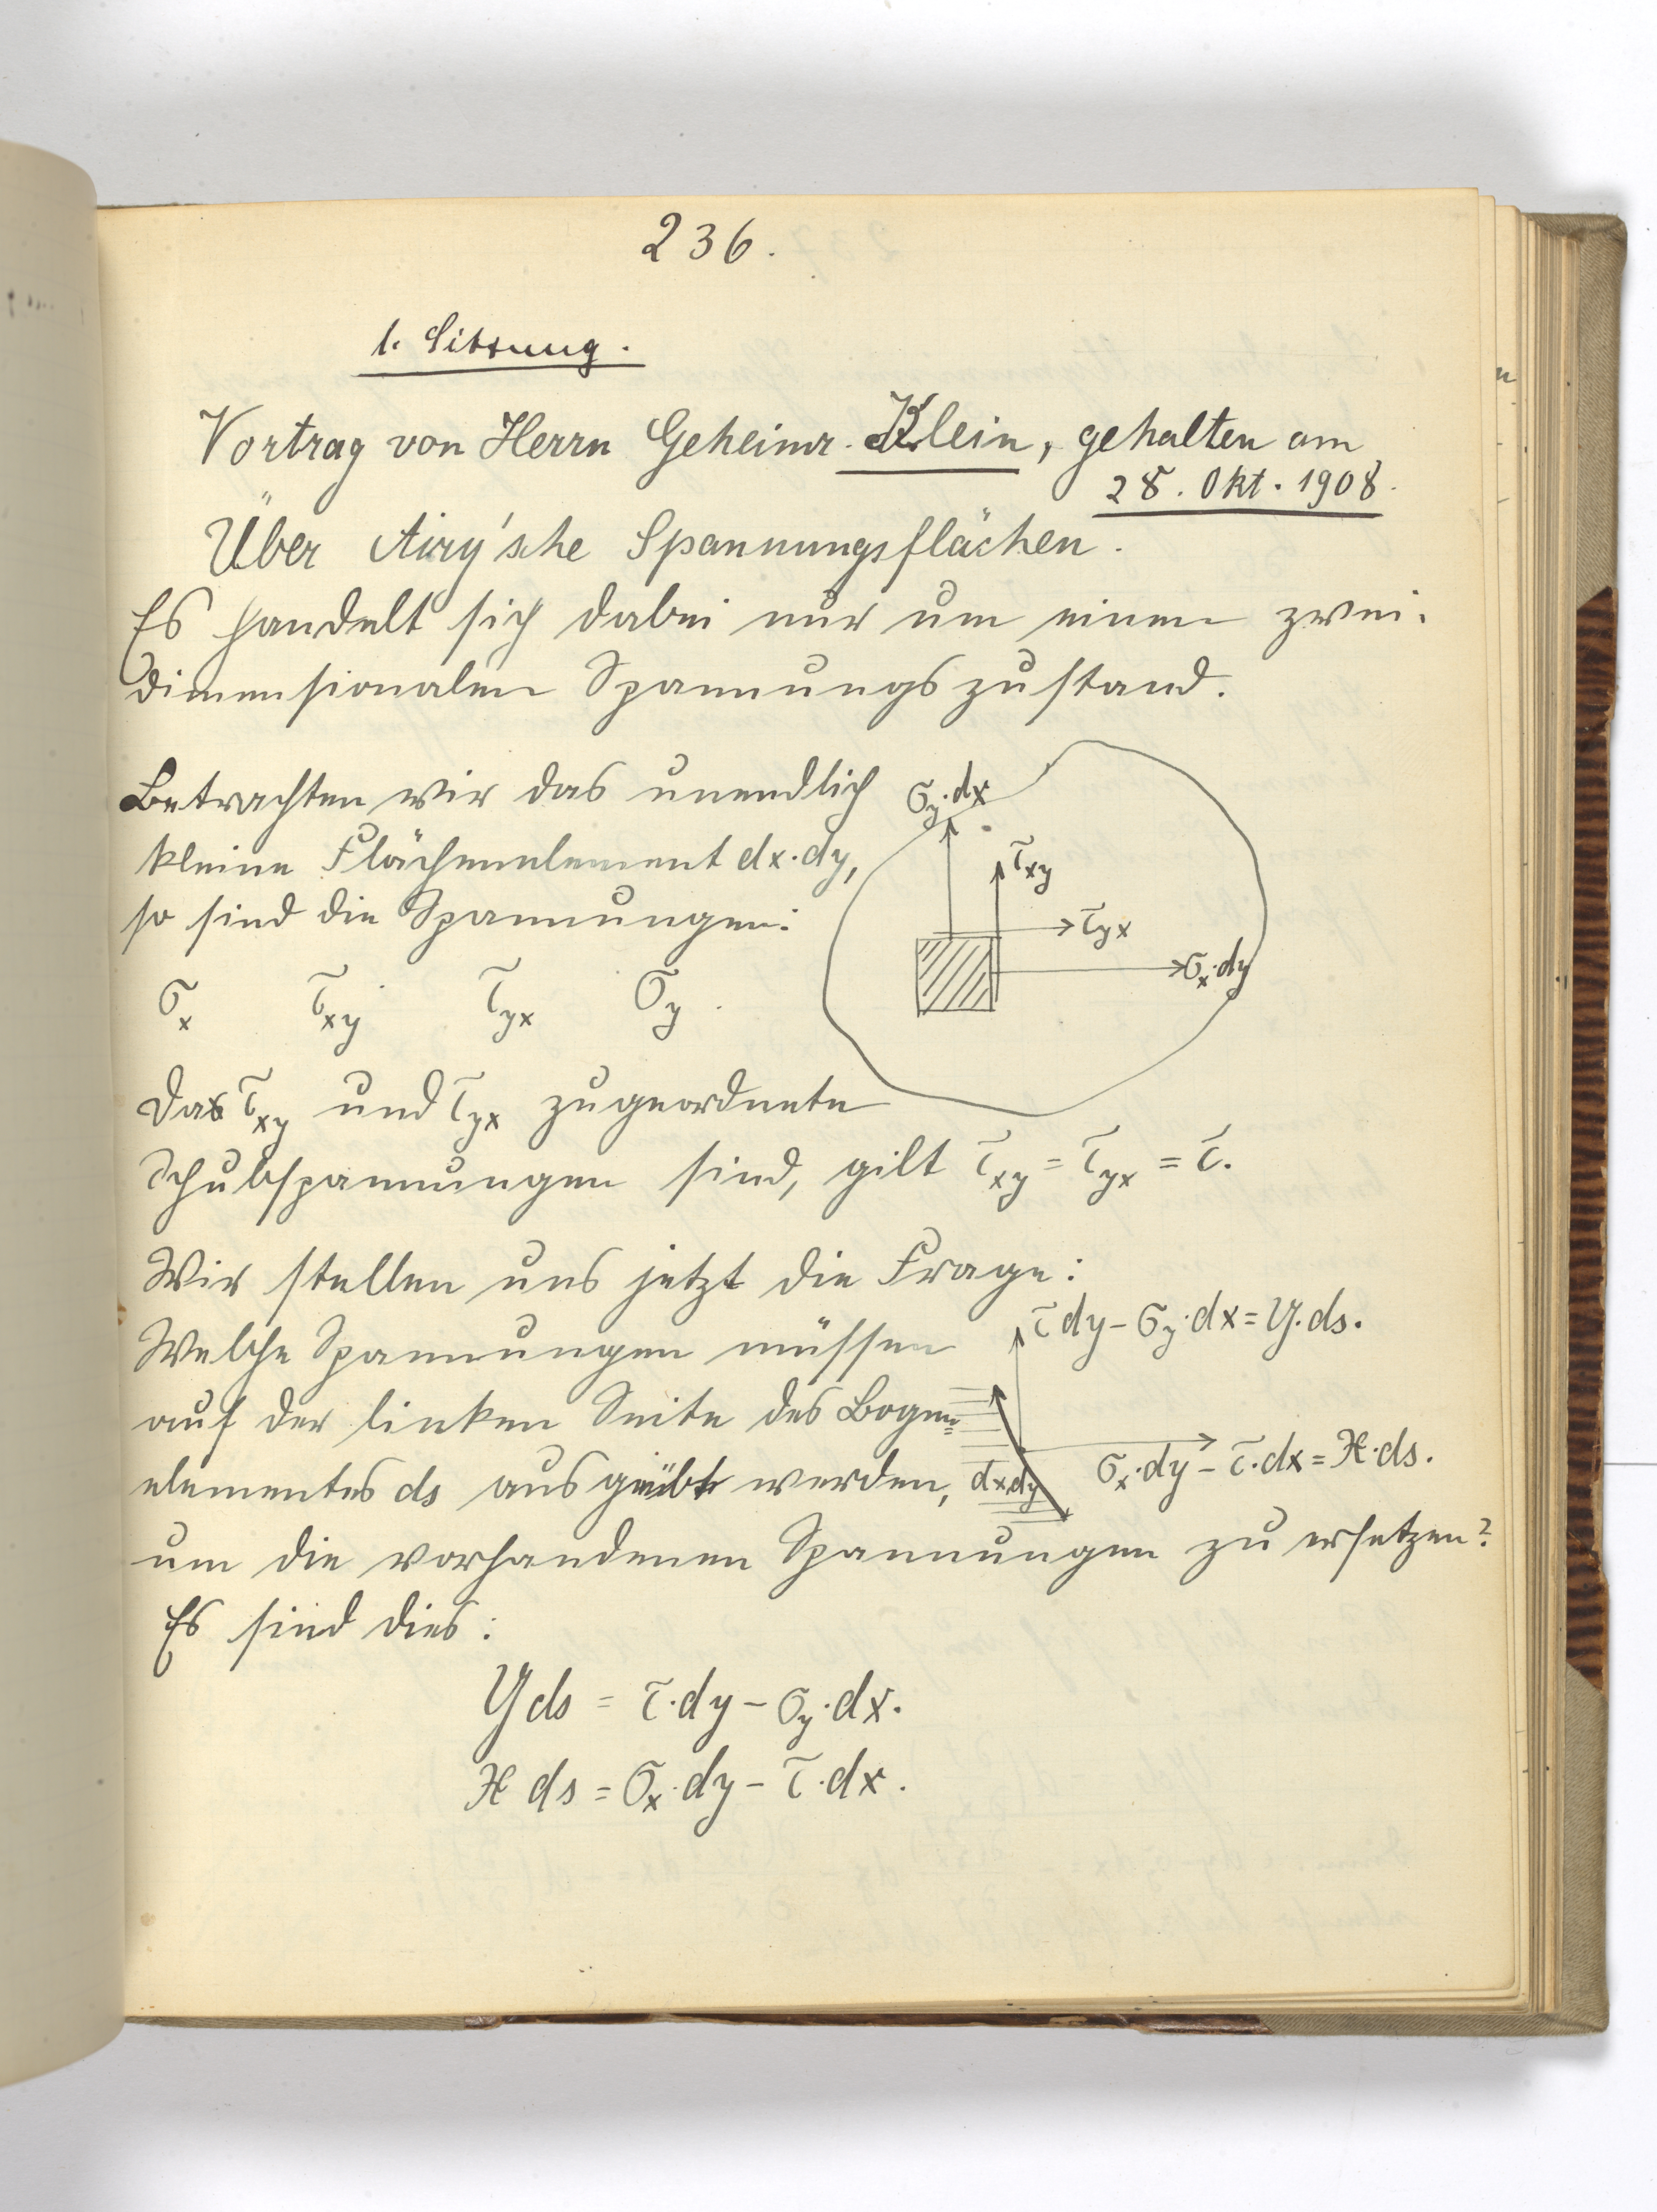 236.
1. Sitzung.
Vortrag von Herrn Geheimr. Klein, gehalten am
28. Okt. 1908.
Über Airy'sche Spannungsflächen.
Es handelt sich dabei nur um einen zwei-
dimensionalen Spannungszustand.
Betrachten wir das unendlich
kleine Flächenelement dx·dy,
so sind die Spannungen:
σx τxy τyx σy.
σy·dx
τxy
τyx
σx·dy
Da τxy und τyx zugeordnete
Schubspannungen sind, gilt τxy = τyx = τ.
Wir stellen uns jetzt die Frage:
Welche Spannungen müssen
auf der linken Seite des Bogen=
elementes ds ausgeübt werden,
um die vorhandenen Spannungen zu ersetzen?
τdy - σy·dx = Y·ds.
σx·dy - τ·dx = X·ds.
dxdy
Es sind dies:
Yds = τ·dy - σy·dx.
X ds = σx·dy - τ·dx.